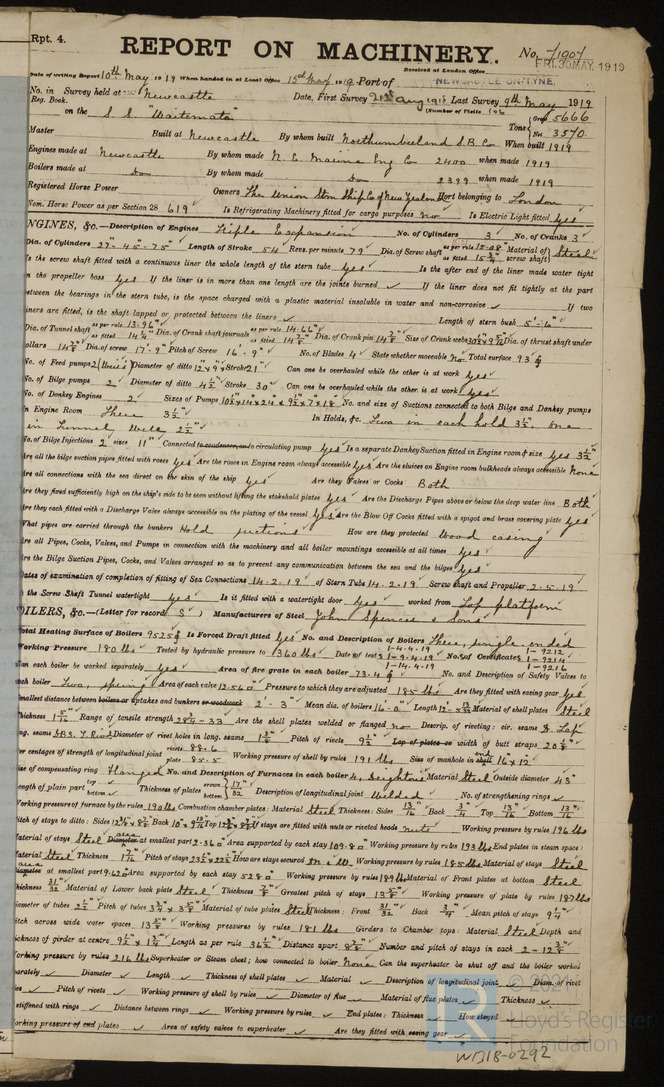 Rpt. 4.
REPORT ON MACHINERY.
No. 71907
FRI. 30 MAY. 1919
Date of writing Report 10th May 1919 When handed in at Local Office 15th May 1919 Port of NEWCASTLE-ON-TYNE.
Received at London Office
No. in Survey held at Newcastle Date, First Survey 21st Aug 1918 Last Survey 9th May 1919
Reg. Book.
(Number of Visits 106
on the S. S. "Waitemata" Tons Gross 5666
Net 3570
Master Built at Newcastle By whom built Northumberland S.B. Co When built 1919
Engines made at Newcastle By whom made N. E. Marine Eng Co 2400 when made 1919
Boilers made at Do By whom made Do 2399 when made 1919
Registered Horse Power Owners The Union Stm Ship Co of New Zealand Port belonging to London
Nom. Horse Power as per Section 28 619 Is Refrigerating Machinery fitted for cargo purposes No Is Electric Light fitted Yes
NGINES, &c.—Description of Engines Triple Expansion No. of Cylinders 3 No. of Cranks 3
Dia. of Cylinders 27-45-75" Length of Stroke 54 Revs. per minute 79 Dia. of Screw shaft as per rule 15.08 as fitted 15¾" Material of screw shaft Steel
Is the screw shaft fitted with a continuous liner the whole length of the stern tube Yes Is the after end of the liner made water tight
in the propeller boss yes If the liner is in more than one length are the joints burned ✓ If the liner does not fit tightly at the part
between the bearings in the stern tube, is the space charged with a plastic material insoluble in water and non-corrosive ✓ If two
liners are fitted, is the shaft lapped or protected between the liners ✓ Length of stern bush 5'-6"
Dia. of Tunnel shaft as per rule 13.96" as fitted 14¼" Dia. of Crank shaft journals as per rule 14.66" as fitted 14⅞" Dia. of Crank pin 14⅞" Size of Crank webs Dia. of thrust shaft under
collars 14⅞" Dia. of screw 17'-9" Pitch of Screw 16'-9" No. of Blades 4 State whether moveable No Total surface 93
No. of Feed pumps 2 (Weirs) Diameter of ditto 12"x9" Stroke 21" Can one be overhauled while the other is at work Yes
No. of Bilge pumps 2 Diameter of ditto 4½" Stroke 30" Can one be overhauled while the other is at work Yes
No. of Donkey Engines 2 Sizes of Pumps 10½"x14"x24" & 9½"x7"x18" No. and size of Suctions connected to both Bilge and Donkey pumps
in Engine Room Three 3½" In Holds, &c. Two in each hold 3½". One
in Tunnel Well 2½"
No. of Bilge Injections 2 sizes 11" Connected to condenser, or to circulating pump Yes Is a separate Donkey Suction fitted in Engine room & size Yes 3½"
Are all the bilge suction pipes fitted with roses Yes Are the roses in Engine room always accessible Yes Are the sluices on Engine room bulkheads always accessible None
Are all connections with the sea direct on the skin of the ship Yes Are they Valves or Cocks Both
Are they fixed sufficiently high on the ship's side to be seen without lifting the stokehold plates Yes Are the Discharge Pipes above or below the deep water line Both
Are they each fitted with a Discharge Valve always accessible on the plating of the vessel Yes Are the Blow Off Cocks fitted with a spigot and brass covering plate Yes
What pipes are carried through the bunkers Hold suctions How are they protected Wood casing
Are all Pipes, Cocks, Valves, and Pumps in connection with the machinery and all boiler mountings accessible at all times Yes
Are the Bilge Suction Pipes, Cocks, and Valves arranged so as to prevent any communication between the sea and the bilges Yes
Dates of examination of completion of fitting of Sea Connections 14.2.19 of Stern Tube 14.2.19 Screw shaft and Propeller 2.5.19
Is the Screw Shaft Tunnel watertight Yes Is it fitted with a watertight door Yes worked from Top platform
OILERS, &c.—(Letter for record S) Manufacturers of Steel John Spencer & Sons
Total Heating Surface of Boilers 9525 Is Forced Draft fitted Yes No. and Description of Boilers Three, single-ended
Working Pressure 180 lbs Tested by hydraulic pressure to 360 lbs Date of test 1-4.4.19 1-9.4.19 1-14.4.19 No. of Certificates 1-9212 1-9214 1-9216
Can each boiler be worked separately Yes Area of fire grate in each boiler 73.4 No. and Description of Safety Valves to
each boiler Two, spring Area of each valve 12.560" Pressure to which they are adjusted 185 lbs Are they fitted with easing gear Yes
Smallest distance between boilers or uptakes and bunkers or woodwork 2'-3" Mean dia. of boilers 16'-0" Length Material of shell plates Steel
Thickness Range of tensile strength 28¾-33 Are the shell plates welded or flanged No Descrip. of riveting: cir. seams D. Lap
long. seams D.B.S. T. Rivd Diameter of rivet holes in long. seams Pitch of rivets 9½" Lap of plates or width of butt straps
Per centages of strength of longitudinal joint rivets 88.6 plate 85.5 Working pressure of shell by rules 191 lbs Size of manhole in shell end 16"x12"
Size of compensating ring Flanged No. and Description of Furnaces in each boiler 4, Deighton Material Steel Outside diameter 43"
Length of plain part top bottom Thickness of plates crown bottom 17/32" Description of longitudinal joint Welded No. of strengthening rings ✓
Working pressure of furnace by the rules 190 lbs Combustion chamber plates: Material Steel Thickness: Sides 13/16" Back ¾" Top 13/16" Bottom 13/16"
Pitch of stays to ditto: Sides Back Top If stays are fitted with nuts or riveted heads nuts Working pressure by rules 196 lbs
Material of stays Steel Diameter area at smallest part 2.360" Area supported by each stay 109.80" Working pressure by rules 193 lbs End plates in steam space:
Material Steel Thickness Pitch of stays How are stays secured Working pressure by rules 185 lbs Material of stays Steel
Diameter area at smallest part 9.620" Area supported by each stay 528.0" Working pressure by rules 189 lbs Material of Front plates at bottom Steel
Thickness 31/32" Material of Lower back plate Steel Thickness ⅞" Greatest pitch of stays Working pressure of plate by rules 187 lbs
Diameter of tubes 2½" Pitch of tubes 3¾"x3⅝" Material of tube plates Steel Thickness: Front 31/32" Back ¾" Mean pitch of stays 9¼"
Pitch across wide water spaces 13⅝" Working pressures by rules 181 lbs Girders to Chamber tops: Material Steel Depth and
thickness of girder at centre Length as per rule Distance apart Number and pitch of stays in each
Working pressure by rules 216 lbs Superheater or Steam chest; how connected to boiler None Can the superheater be shut off and the boiler worked
separately ✓ Diameter ✓ Length ✓ Thickness of shell plates ✓ Material ✓ Description of longitudinal joint ✓ Diam. of rivet
holes ✓ Pitch of rivets ✓ Working pressure of shell by rules ✓ Diameter of flue ✓ Material of flue plates ✓ Thickness ✓
If stiffened with rings ✓ Distance between rings ✓ Working pressure by rules ✓ End plates: Thickness ✓ How stayed ✓
Working pressure of end plates ✓ Area of safety valves to superheater ✓ Are they fitted with easing gear ✓
© 2021
LR
Lloyd's Register
Foundation
W018-0292